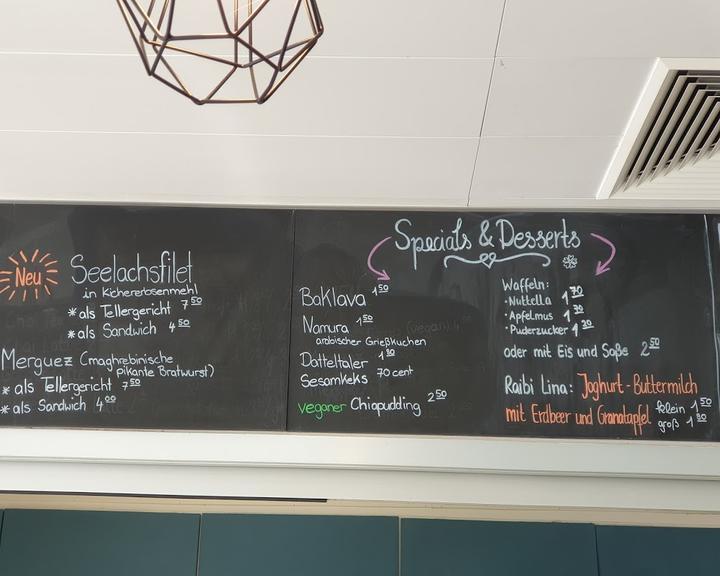 Neu
Seelachsfilet
in Kichererbsenmehl
* als Tellergericht 7 50
* als Sandwich 4 50
Merguez (maghrebinische
pikante Bratwurst)
* als Tellergericht 7 50
* als Sandwich 4 00
Specials & Desserts
Baklava 1 50
Namura 1 50
arabischer Grießkuchen
Datteltaler
Sesamkeks 70 cent
veganer Chiapudding 2 50
Waffeln:
• Nuttella 1 70
• Apfelmus 1 30
• Puderzucker 1 30
oder mit Eis und Soße 2 50
Raibi Lina: Joghurt-Buttermilch
mit Erdbeer und Granatapfel klein 1 50
groß